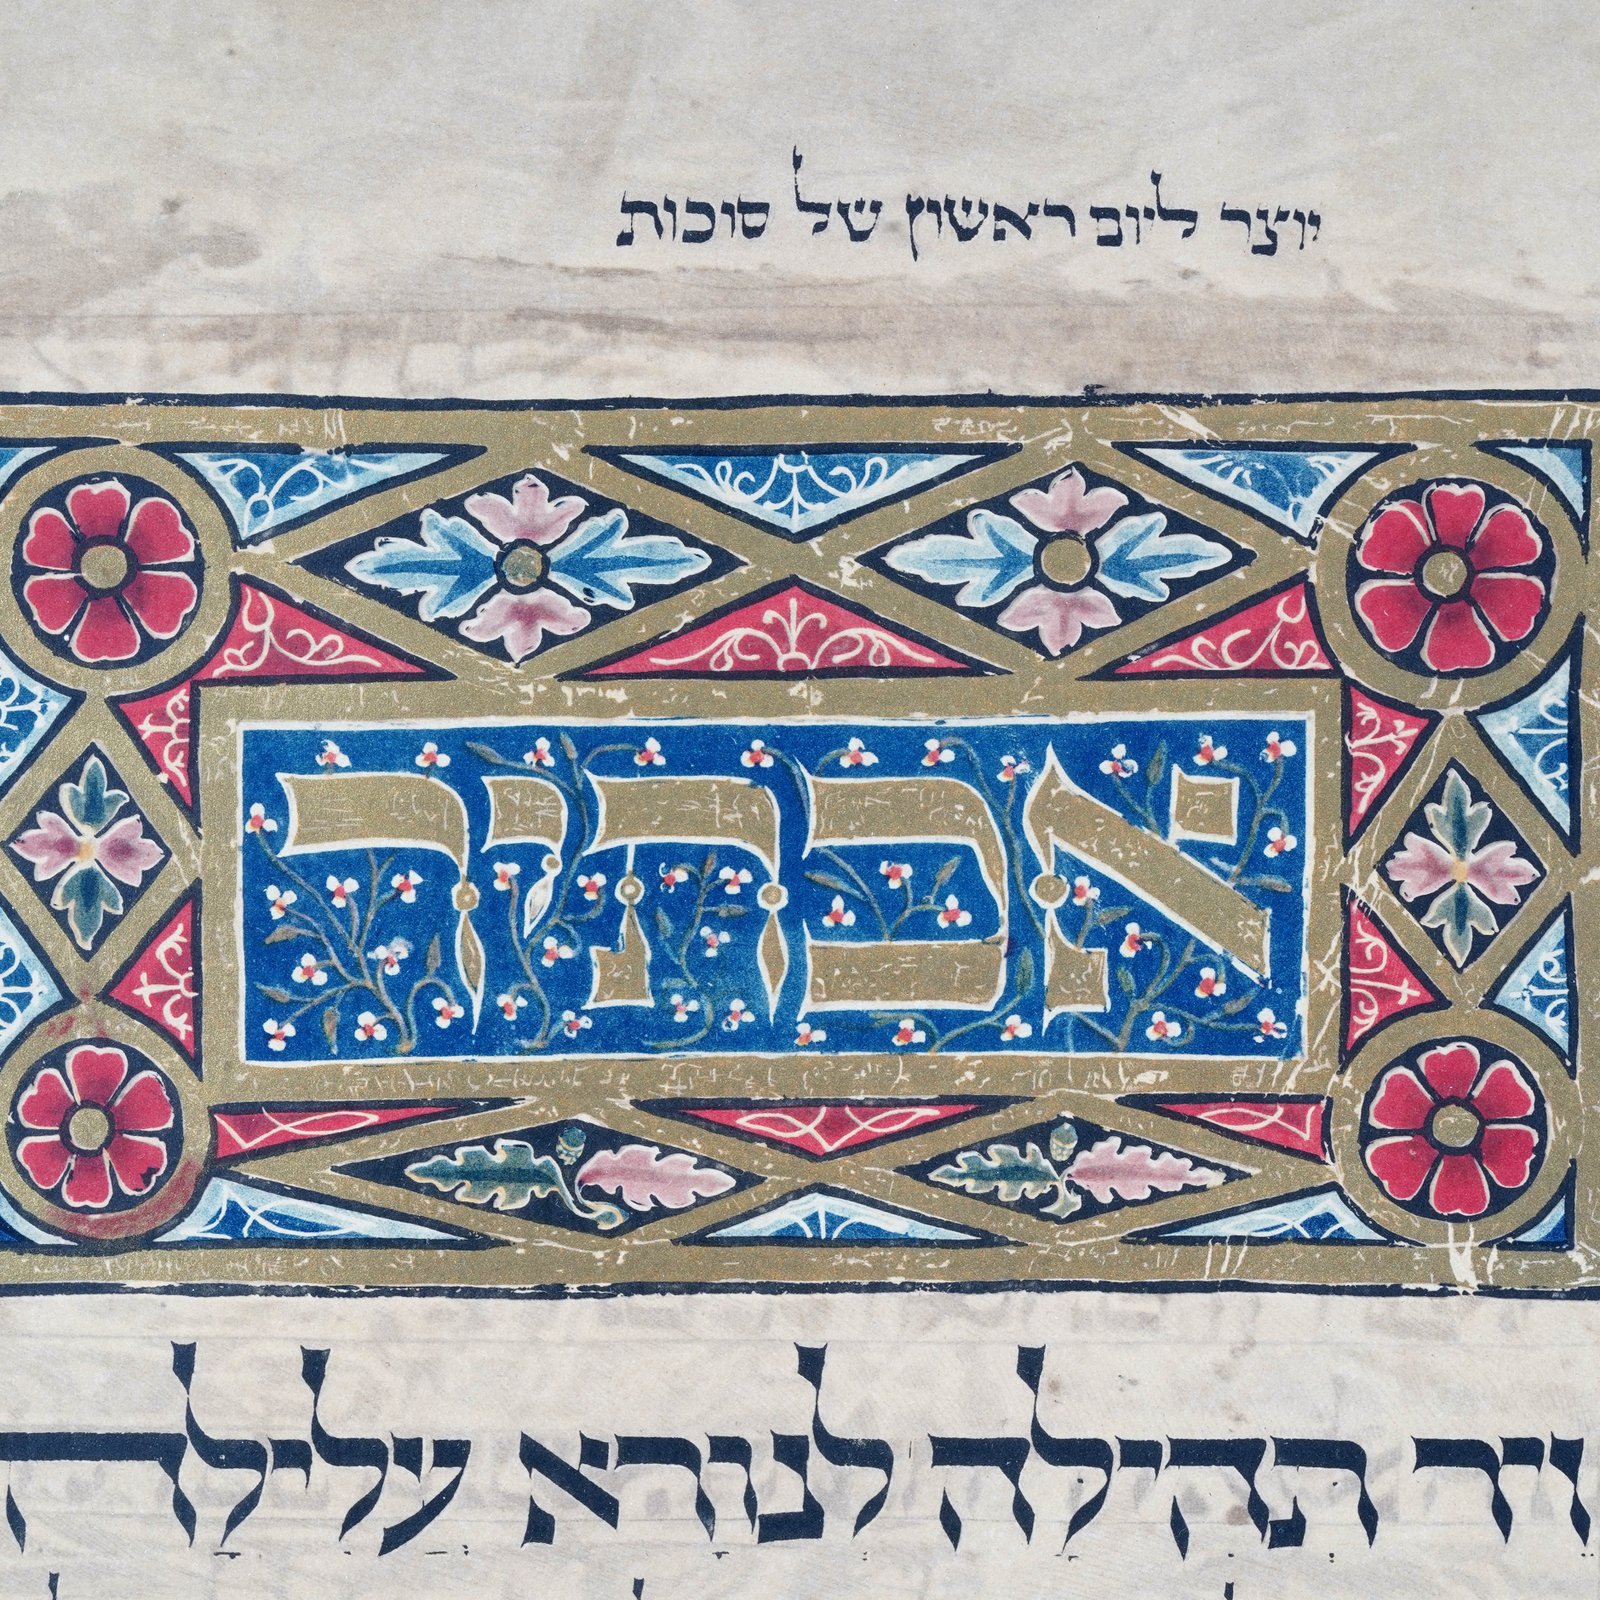 יוצר ליום ראשון של סוכות
אכתיר
זיר תהילה לנורא עלילה